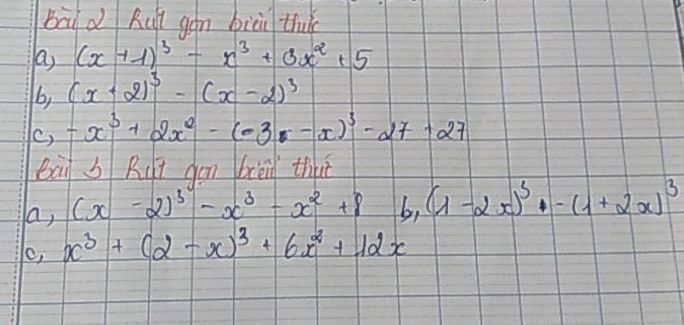 Bài 2 Rút gọn biểu thức
a, (x + 1)³ - x³ + 3x² + 5
b, (x + 2)³ - (x - 2)³
c, -x³ + 2x² - (-3 - x)³ - 27 + 27
Bài 3 Rút gọn biểu thức
a, (x - 2)³ - x³ - x² + 8 b, (1 - 2x)³ - (1 + 2x)³
c, x³ + (2 - x)³ + 6x² + 12x